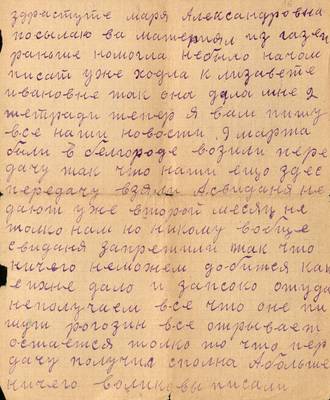 здраступте маря Александровна
посылаю ва материял из газеи
раньше немогла небыло начом
писат уже ходла к лизавете
ивановне так она дала мне 2
тетради тепер я вам пишу
все наши новости 9 марта
были в белгороде возили пере
дачу так что наши ещо здес
передачу взяли Асвиданя не
дают уже второй месяц не
толко нам но никому вобще
свиданя запретили так что
ничего неможем добится как
е ихне дало и запсоко отуда
неполучаем все что оне пи
шут рогозин все отрывает
остается толко то что пер
дачу получил сполна Аболше
ничего волик вы писали